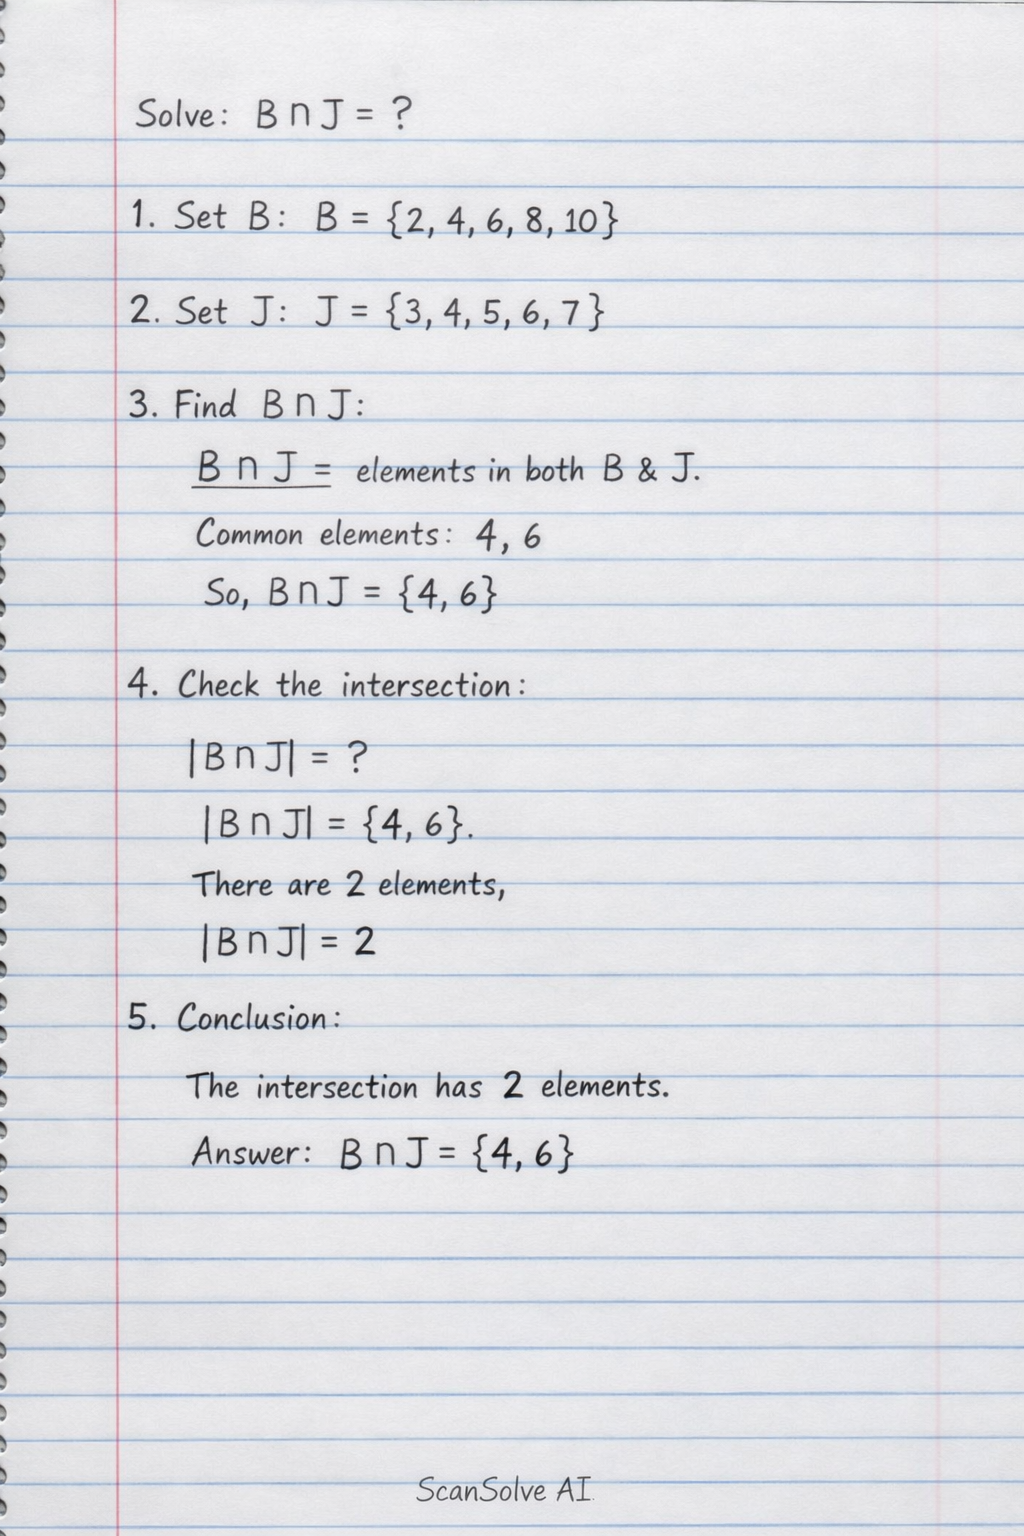 Solve: B ∩ J = ?
1. Set B: B = {2, 4, 6, 8, 10}
2. Set J: J = {3, 4, 5, 6, 7}
3. Find B ∩ J:
B ∩ J = elements in both B & J.
Common elements: 4, 6
So, B ∩ J = {4, 6}
4. Check the intersection:
|B ∩ J| = ?
|B ∩ J| = {4, 6}.
There are 2 elements,
|B ∩ J| = 2
5. Conclusion:
The intersection has 2 elements.
Answer: B ∩ J = {4, 6}
ScanSolve AI